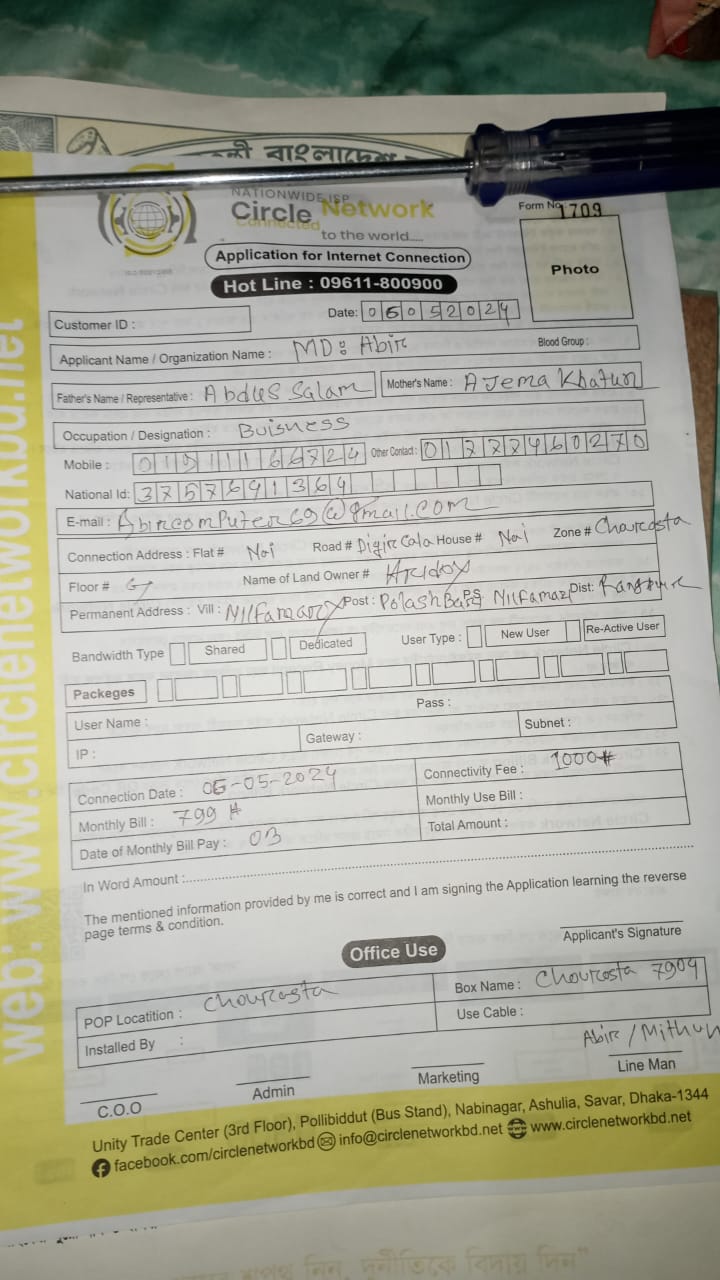 বাংলাদেশ
NATIONWIDE ISP
Circle Network
Connected
to the world.....
Form No 1709
Application for Internet Connection
Photo
Hot Line : 09611-800900
Customer ID :
Date: 06052024
Applicant Name / Organization Name : MD: Abir
Blood Group :
Father's Name / Representative : Abdus Salam Mother's Name : AJema Khatun
Occupation / Designation : Buisness
Mobile : 01911166724 Other Contact : 01777460270
National Id: 3757691364
E-mail : Abircomputer69@gmail.com
Connection Address : Flat # Nai Road # House # Nai Zone # Chourasta
Floor # G Name of Land Owner # Hridoy
Permanent Address : Vill : Nilfamary Post : Polash Bari P.S Nilfamary Dist: Rangpur
Bandwidth Type Shared Dedicated User Type : New User Re-Active User
Packeges
User Name : Pass :
IP : Gateway : Subnet :
Connection Date : 06-05-2024 Connectivity Fee : 1000#
Monthly Bill : 799 # Monthly Use Bill :
Date of Monthly Bill Pay : 03 Total Amount :
In Word Amount :
The mentioned information provided by me is correct and I am signing the Application learning the reverse
page terms & condition.
Applicant's Signature
Office Use
POP Locatition : Chourasta Box Name : Chourasta 7904
Installed By : Use Cable :
Abir / Mithun
C.O.O Admin Marketing Line Man
Unity Trade Center (3rd Floor), Pollibiddut (Bus Stand), Nabinagar, Ashulia, Savar, Dhaka-1344
facebook.com/circlenetworkbd info@circlenetworkbd.net www.circlenetworkbd.net
web: www.circlenetworkbd.net
শপথ নিন, দুর্নীতিকে বিদায় দিন"